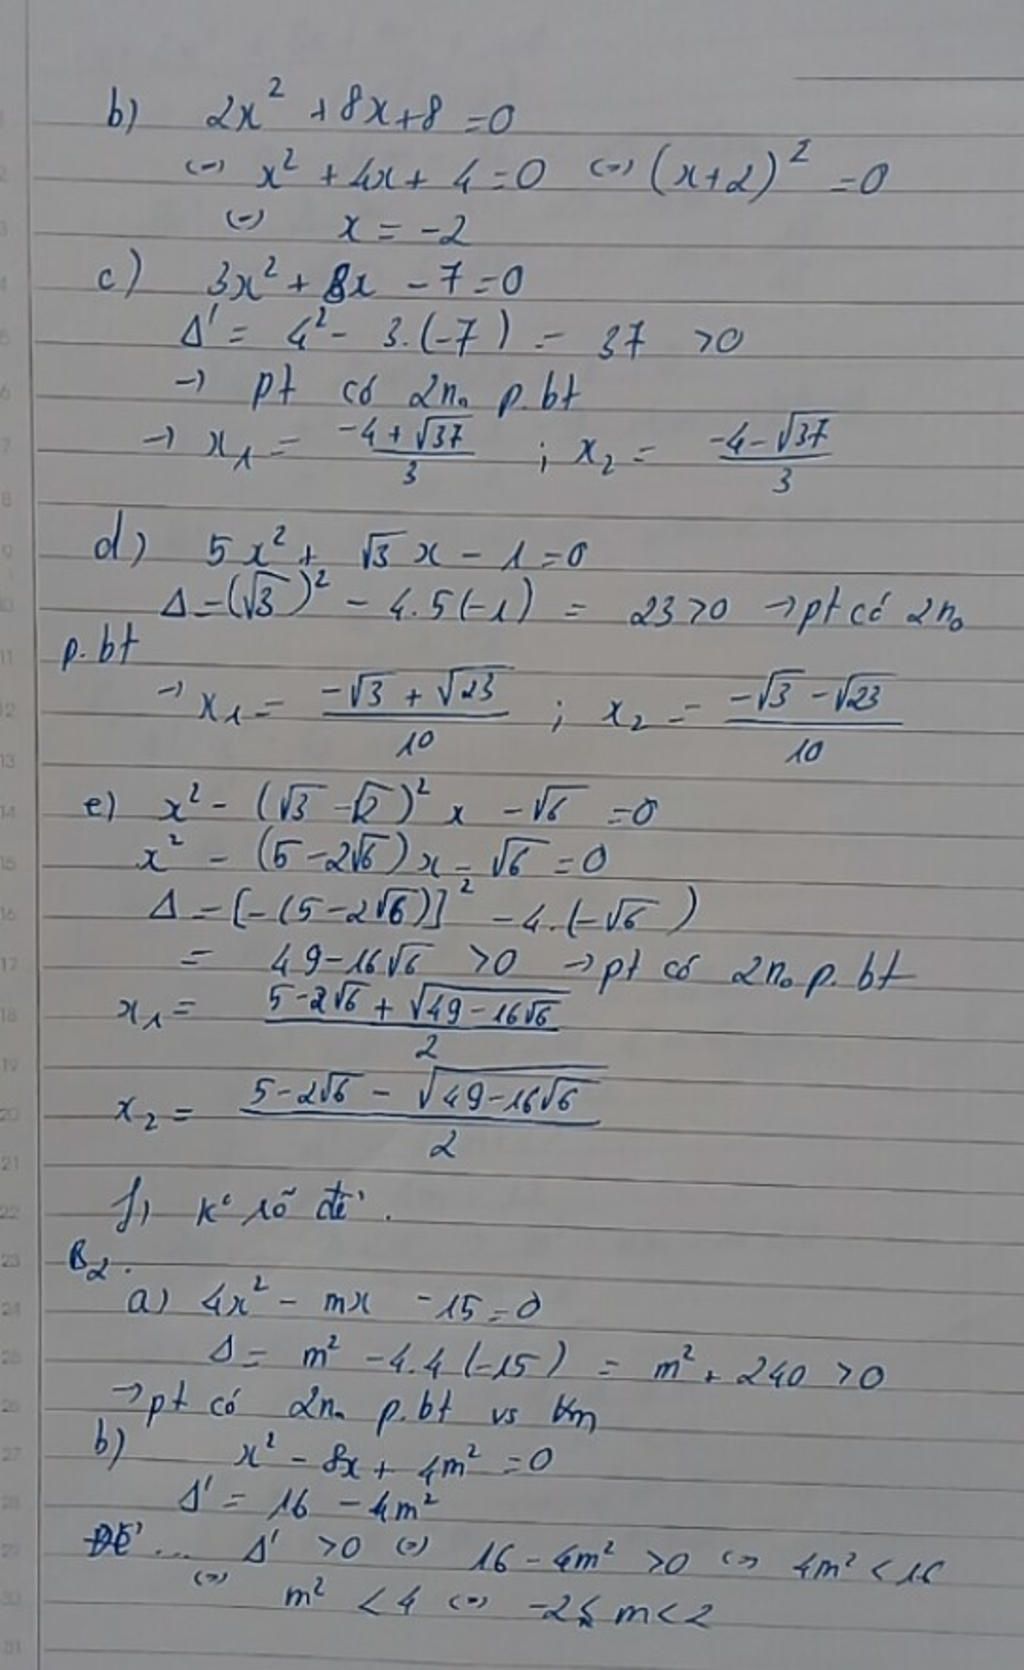 b) 2x² + 8x + 8 = 0
(=) x² + 4x + 4 = 0 (=) (x+2)² = 0
(=) x = -2
c) 3x² + 8x - 7 = 0
Δ' = 4² - 3.(-7) = 37 > 0
→ pt có 2n₀ p.bt
→ x₁ = (-4+√37)/3 ; x₂ = (-4-√37)/3
d) 5x² + √3 x - 1 = 0
Δ = (√3)² - 4.5(-1) = 23 > 0 → pt có 2n₀
p.bt
→ x₁ = (-√3 + √23)/10 ; x₂ = (-√3 - √23)/10
e) x² - (√3 - √2)² x - √6 = 0
x² - (5-2√6)x - √6 = 0
Δ = [-(5-2√6)]² - 4.(-√6)
= 49-16√6 > 0 → pt có 2n₀ p.bt
x₁ = (5-2√6 + √(49-16√6))/2
x₂ = (5-2√6 - √(49-16√6))/2
f) k° rõ đề.
B2.
a) 4x² - mx - 15 = 0
Δ = m² - 4.4(-15) = m² + 240 > 0
→ pt có 2n₀ p.bt vs ∀m
b) x² - 8x + 4m² = 0
Δ' = 16 - 4m²
Để ... Δ' > 0 (=) 16 - 4m² > 0 (=) 4m² < 16
(=) m² < 4 (=) -2 < m < 2